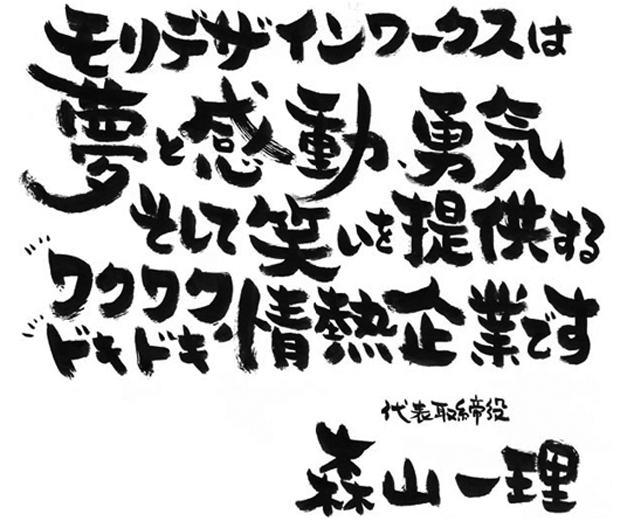 モリデザインワークスは
夢と感動、勇気
そして笑いを提供する
ワクワク
ドキドキ 情熱企業です
代表取締役
森山一理